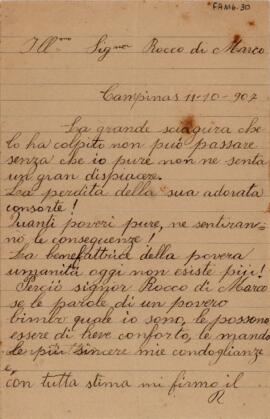 FAM6.30
Ill.mo Sig.nor Rocco di Marco
Campinas 11-10-907
La grande sciagura che
lo ha colpito non può passare
senza che io pure non ne senta
un gran dispiacere.
La perdita della sua adorata
consorte!
Quanti poveri pure, ne sentiran-
no, le conseguenze!
La benefattrice della povera
umanità, oggi non esiste più!
Perciò signor Rocco di Marco
se le parole di un povero
bimbo quale io sono, le possono
essere di lieve conforto, le mando
le più sincere mie condoglianze
e,
con tutta stima mi firmo il